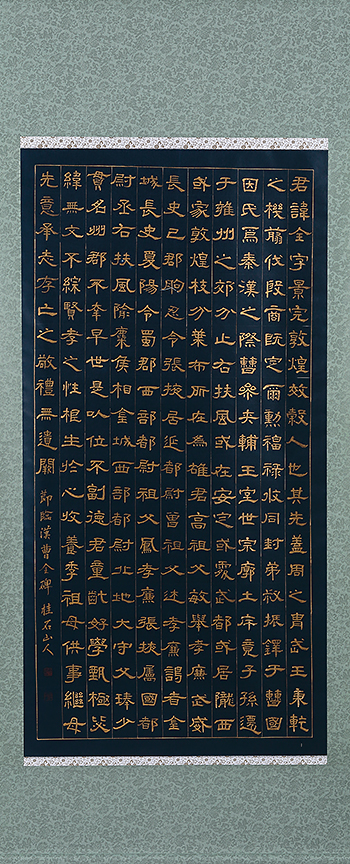 君諱全字景完敦煌效穀人也其先蓋周之胄武王秉乾
之機翦伐殷商既定爾勳福祿攸同封弟叔振鐸于曹國
因氏焉秦漢之際曹參夾輔王室世宗廓土斥竟子孫遷
于雍州之郊分止右扶風或在安定或處武都或居隴西
或家敦煌枝分葉布所在為雄君高祖父敏舉孝廉武威
長史巴郡朐忍令張掖居延都尉曾祖父述孝廉謁者金
城長史夏陽令蜀郡西部都尉祖父鳳孝廉張掖屬國都
尉丞右扶風隃麋侯相金城西部都尉北地大守父琫少
貫名州郡不幸早世是以位不副德君童齔好學甄極毖
緯無文不綜賢孝之性根生於心收養季祖母供事繼母
先意承志存亡之敬禮無遺闕
節臨漢曹全碑 桂石山人